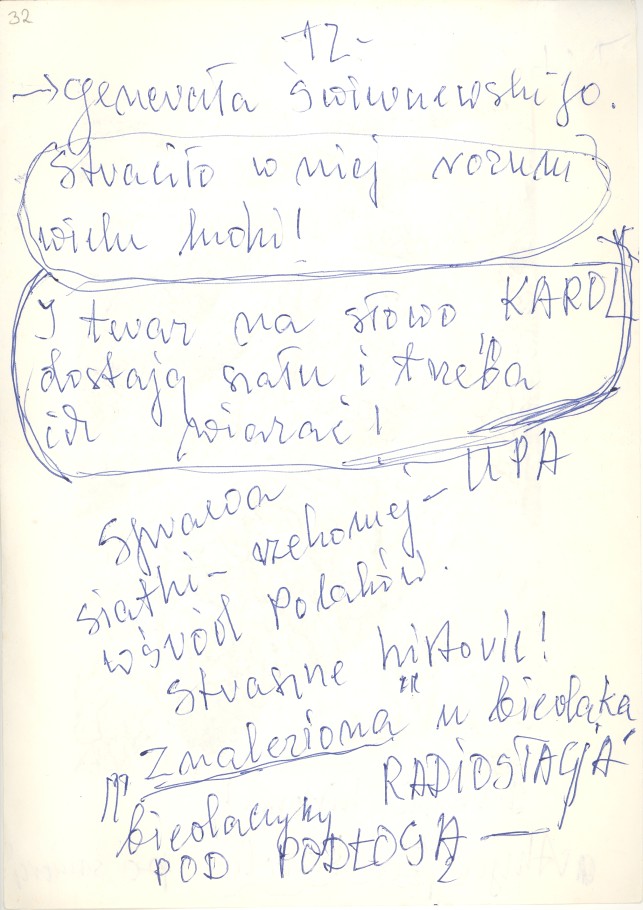 32
12-
→ generała Świrniewskiego.
Straciło w niej rozum
wielu ludzi!
I teraz na słowo KAROL
dostają szału i trzeba
ich wiązać!
Sprawa
siatki - rzekomej - UPA
wśród Polaków.
Straszne historie!
"Znaleziona" u biedaka
biedaczyny RADIOSTACJA
POD PODŁOGĄ —